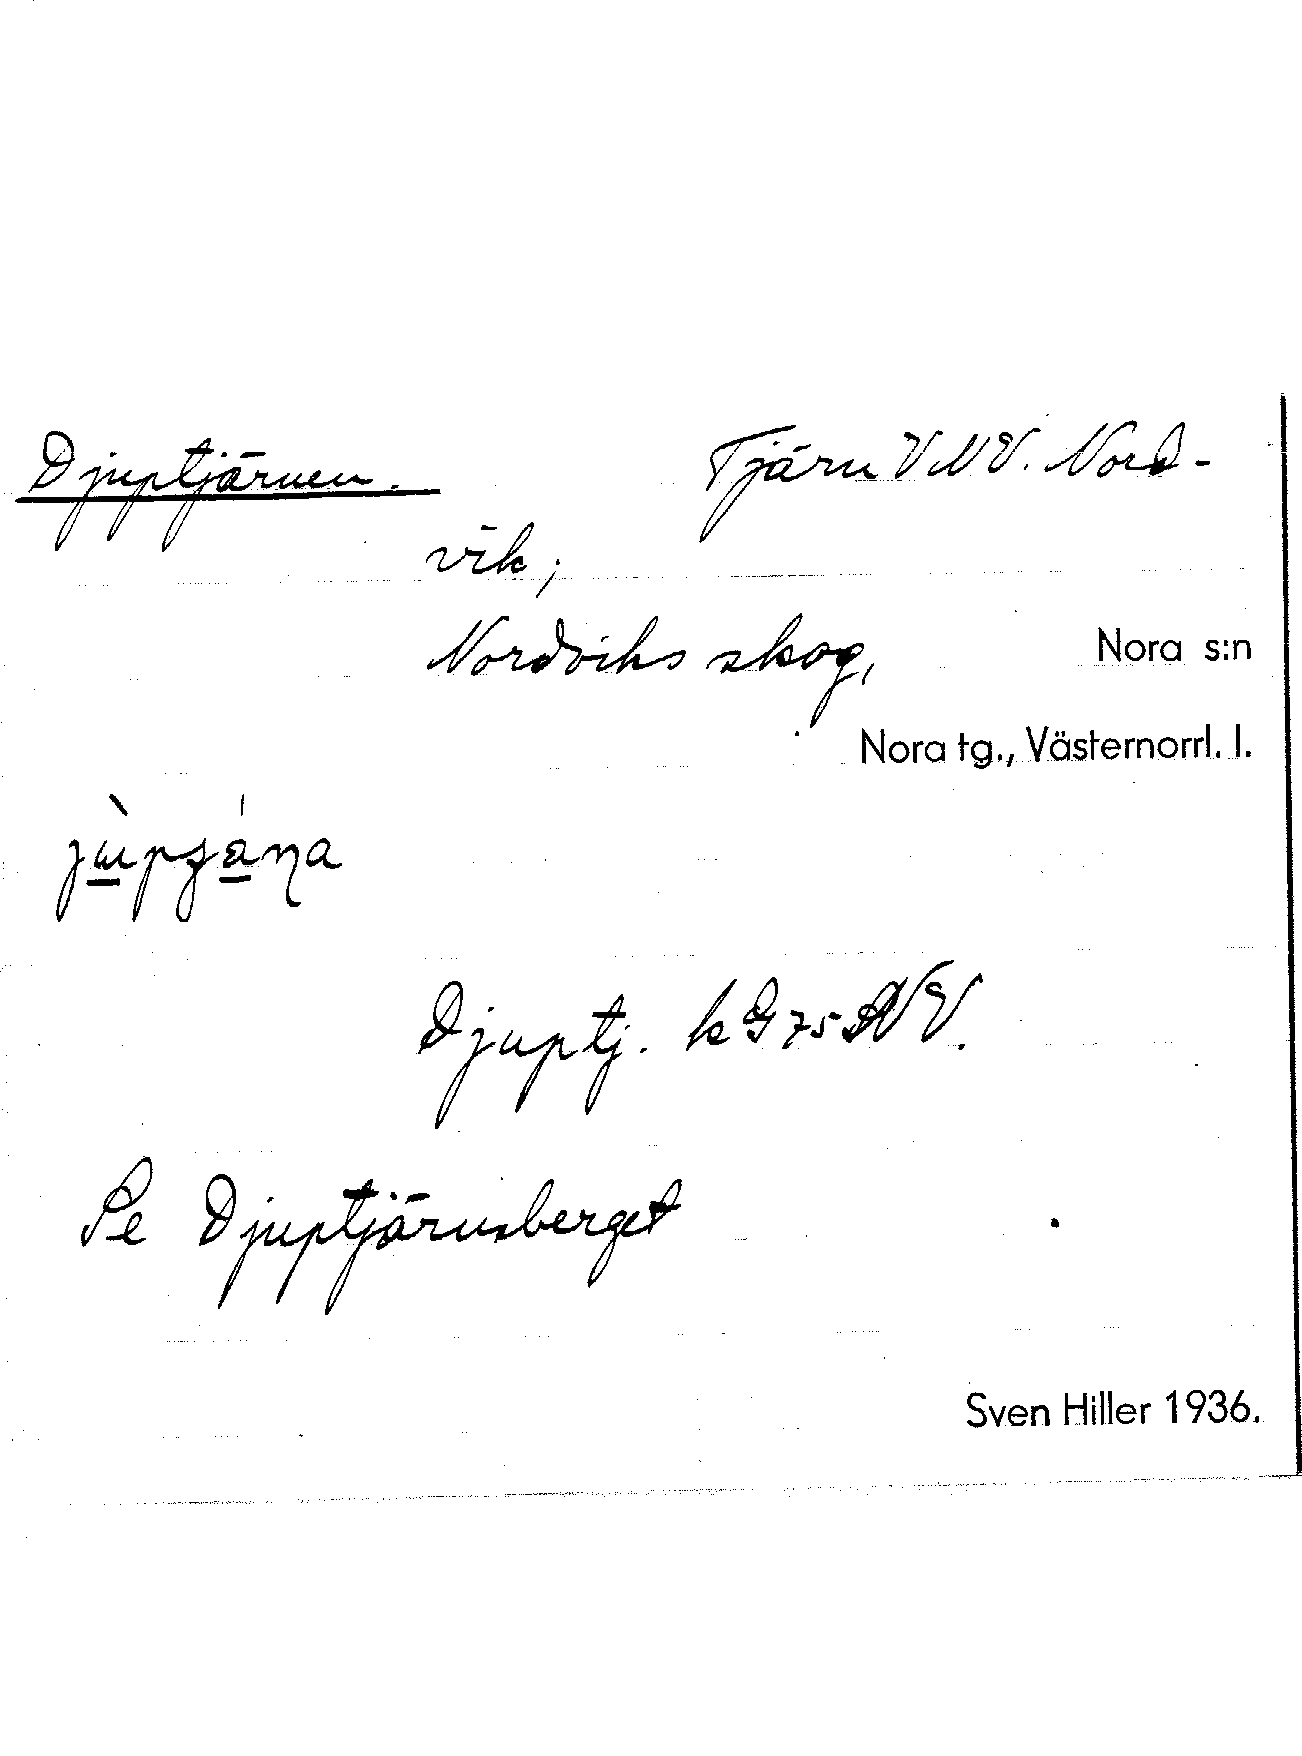 Djuptjärnen. Tjärn V NV. Nord-
vik;
Nordviks skog, Nora s:n
Nora tg., Västernorrl. l.
Djuptj. kG 75 NV.
Se Djuptjärnsberget
Sven Hiller 1936.